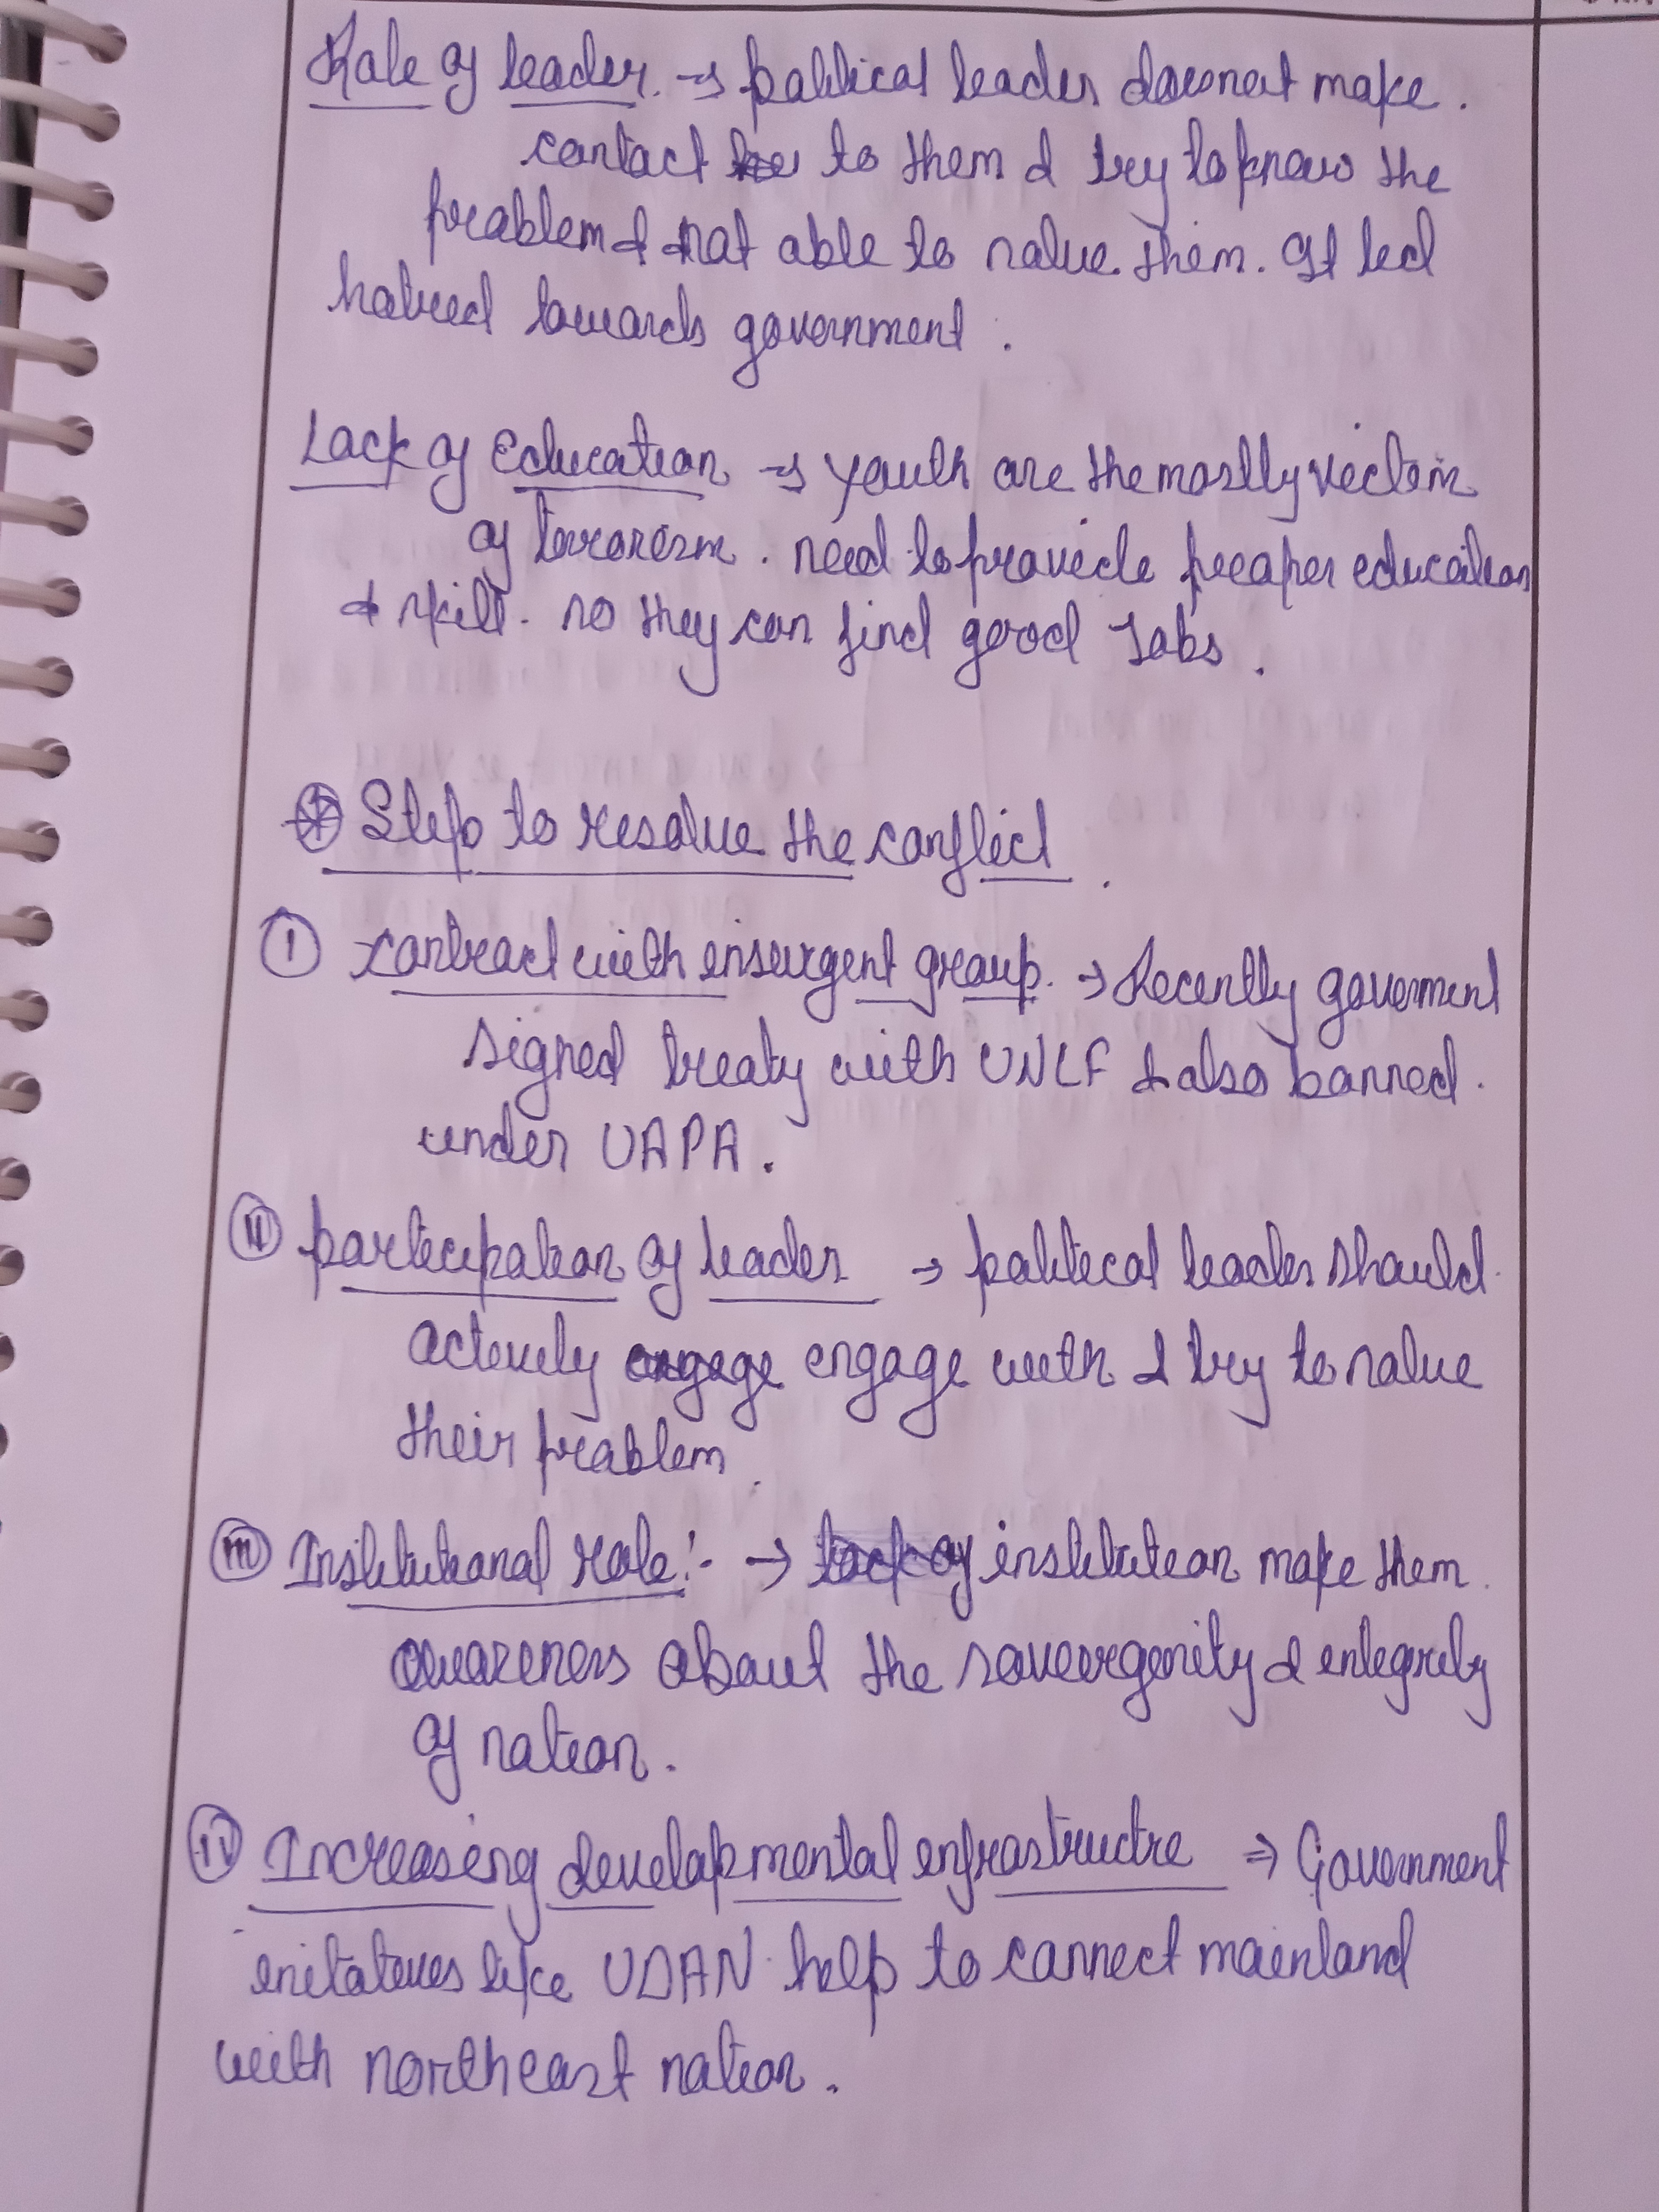 Role of leader. → political leader doesnot make.
contact to them & try to know the
problem & not able to solve them. It led
hatred towards government.
Lack of Education → Youth are the mostly victim
of terrorism. need to provide proper education
& skill. so they can find good Jobs.
Step to resolve the conflict.
① contract with insurgent group. → Recently goverment
signed treaty with UNLF & also banned.
under UAPA.
② participation of leader → political leader should
actively engage engage with & try to solve
their problem.
③ Institutional role:- → lack of institution make them.
awareness about the soveorgenity & integrity
of nation.
④ Increasing developmental infrastructre ⇒ Government
initatives like UDAN help to connect mainland
with northeast nation.